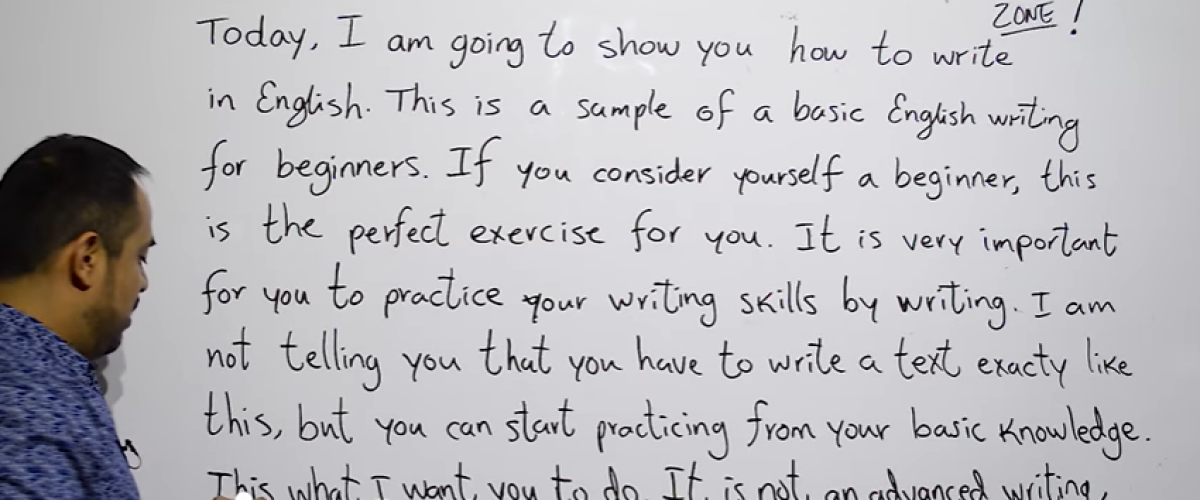 ZONE!
Today, I am going to show you how to write
in English. This is a sample of a basic English writing
for beginners. If you consider yourself a beginner, this
is the perfect exercise for you. It is very important
for you to practice your writing skills by writing. I am
not telling you that you have to write a text exacty like
this, but you can start practicing from your basic knowledge.
This what I want you to do. It is not an advanced writing,